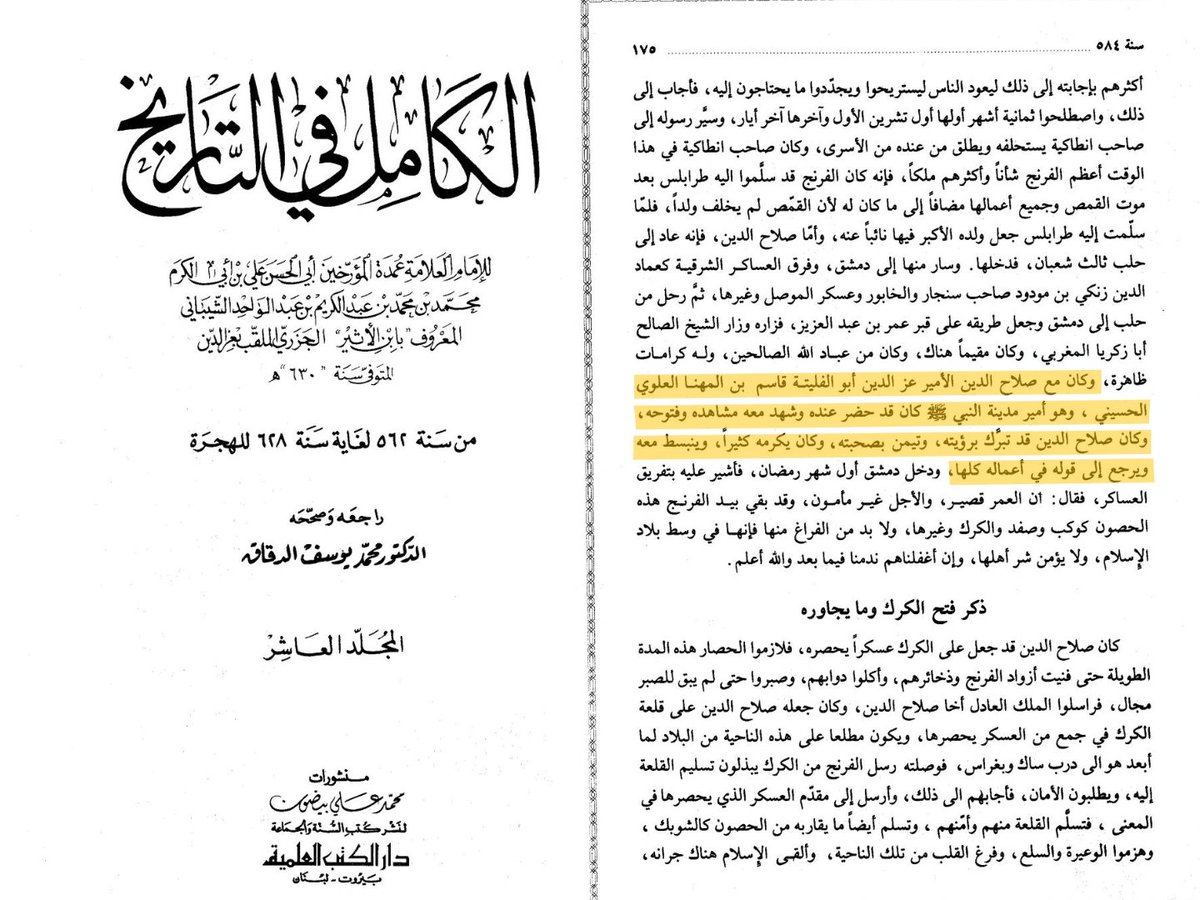 الكامل في التاريخ
للإمام العلامة عمدة المؤرخين أبي الحسن علي بن أبي الكرم
محمد بن محمد بن عبد الكريم بن عبد الواحد الشيباني
المعروف "بابن الأثير" الجزري الملقب بعز الدين
المتوفى سنة "٦٣٠" ه
من سنة ٥٦٢ لغاية سنة ٦٢٨ للهجرة
راجعه وصححه
الدكتور محمد يوسف الدقاق
المجلد العاشر
منشورات
محمد علي بيضون
لنشر كتب السنة والجماعة
دار الكتب العلمية
بيروت - لبنان
سنة ٥٨٤ ........ ١٧٥
أكثرهم بإجابته إلى ذلك ليعود الناس ليستريحوا ويجدّدوا ما يحتاجون إليه، فأجاب إلى
ذلك، واصطلحوا ثمانية أشهر أولها أول تشرين الأول وآخرها آخر أيار، وسيَّر رسوله إلى
صاحب انطاكية يستحلفه ويطلق من عنده من الأسرى، وكان صاحب انطاكية في هذا
الوقت أعظم الفرنج شأناً وأكثرهم ملكاً، فإنه كان الفرنج قد سلَّموا اليه طرابلس بعد
موت القمص وجميع أعمالها مضافاً إلى ما كان له لأن القمّص لم يخلف ولداً، فلمّا
سلّمت إليه طرابلس جعل ولده الأكبر فيها نائباً عنه، وأمّا صلاح الدين، فإنه عاد إلى
حلب ثالث شعبان، فدخلها. وسار منها إلى دمشق، وفرق العساكر الشرقية كعماد
الدين زنكي بن مودود صاحب سنجار والخابور وعسكر الموصل وغيرها، ثمَّ رحل من
حلب إلى دمشق وجعل طريقه على قبر عمر بن عبد العزيز، فزاره وزار الشيخ الصالح
أبا زكريا المغربي، وكان مقيماً هناك، وكان من عباد الله الصالحين، وله كرامات
ظاهرة، وكان مع صلاح الدين الأمير عز الدين أبو الفليتة قاسم بن المهنا العلوي
الحسيني ، وهو أمير مدينة النبي ﷺ كان قد حضر عنده وشهد معه مشاهده وفتوحه،
وكان صلاح الدين قد تبرَّك برؤيته، وتيمن بصحبته، وكان يكرمه كثيراً، وينبسط معه
ويرجع إلى قوله في أعماله كلها، ودخل دمشق أول شهر رمضان، فأشير عليه بتفريق
العساكر، فقال: ان العمر قصير، والأجل غير مأمون، وقد بقي بيد الفرنج هذه
الحصون كوكب وصفد والكرك وغيرها، ولا بد من الفراغ منها فإنها في وسط بلاد
الإسلام، ولا يؤمن شر أهلها، وإن أغفلناهم ندمنا فيما بعد والله أعلم.
ذكر فتح الكرك وما يجاوره
كان صلاح الدين قد جعل على الكرك عسكراً يحصره، فلازموا الحصار هذه المدة
الطويلة حتى فنيت أزواد الفرنج وذخائرهم، وأكلوا دوابهم، وصبروا حتى لم يبق للصبر
مجال، فراسلوا الملك العادل أخا صلاح الدين، وكان جعله صلاح الدين على قلعة
الكرك في جمع من العسكر يحصرها، ويكون مطلعا على هذه الناحية من البلاد لما
أبعد هو الى درب ساك وبغراس، فوصلته رسل الفرنج من الكرك يبذلون تسليم القلعة
إليه، ويطلبون الأمان، فأجابهم الى ذلك، وأرسل إلى مقدّم العسكر الذي يحصرها في
المعنى ، فتسلَّم القلعة منهم وأمّنهم ، وتسلم أيضاً ما يقاربه من الحصون كالشوبك ،
وهزموا الوعيرة والسلع، وفرغ القلب من تلك الناحية، وألقى الإسلام هناك جرانه،